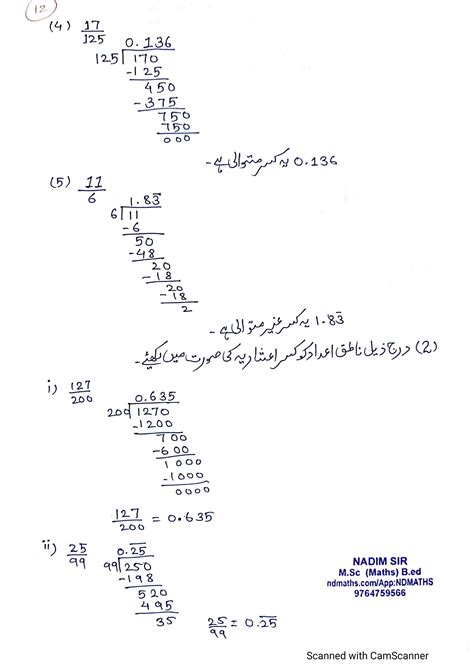 12
(4) 17/125
0.136
125 170
-125
450
-375
750
750
000
0.136 یہ کسر متوالی ہے۔
(5) 11/6
1.83̅
6 11
-6
50
-48
20
-18
20
-18
2
1.83̅ یہ کسر غیر متوالی ہے۔
(2) درج ذیل ناطق اعداد کو کسر اعشاریہ کی صورت میں لکھئے۔
i) 127/200
0.635
200 1270
-1200
700
-600
1000
-1000
0000
127/200 = 0.635
ii) 25/99
0.2̅5̅
99 250
-198
520
495
35
25/99 = 0.2̅5̅
NADIM SIR
M.Sc (Maths) B.ed
ndmaths.com/App:NDMATHS
9764759566
Scanned with CamScanner